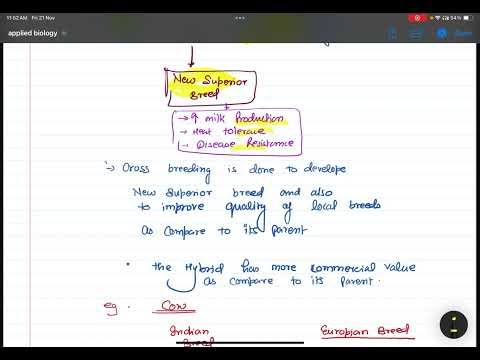 11:52 AM Fri 21 Nov
54%
applied biology
New Superior
Breed
→ ↑ milk Production
→ Heat tolerace
→ Disease Resistance
Cross breeding is done to develope
New Superior breed and also
to improve quality of local breeds
As Compare to its parent
• the Hybrid has more commercial value
as compare to its parent.
eg. Cow
Indian Europian Breed
Breed